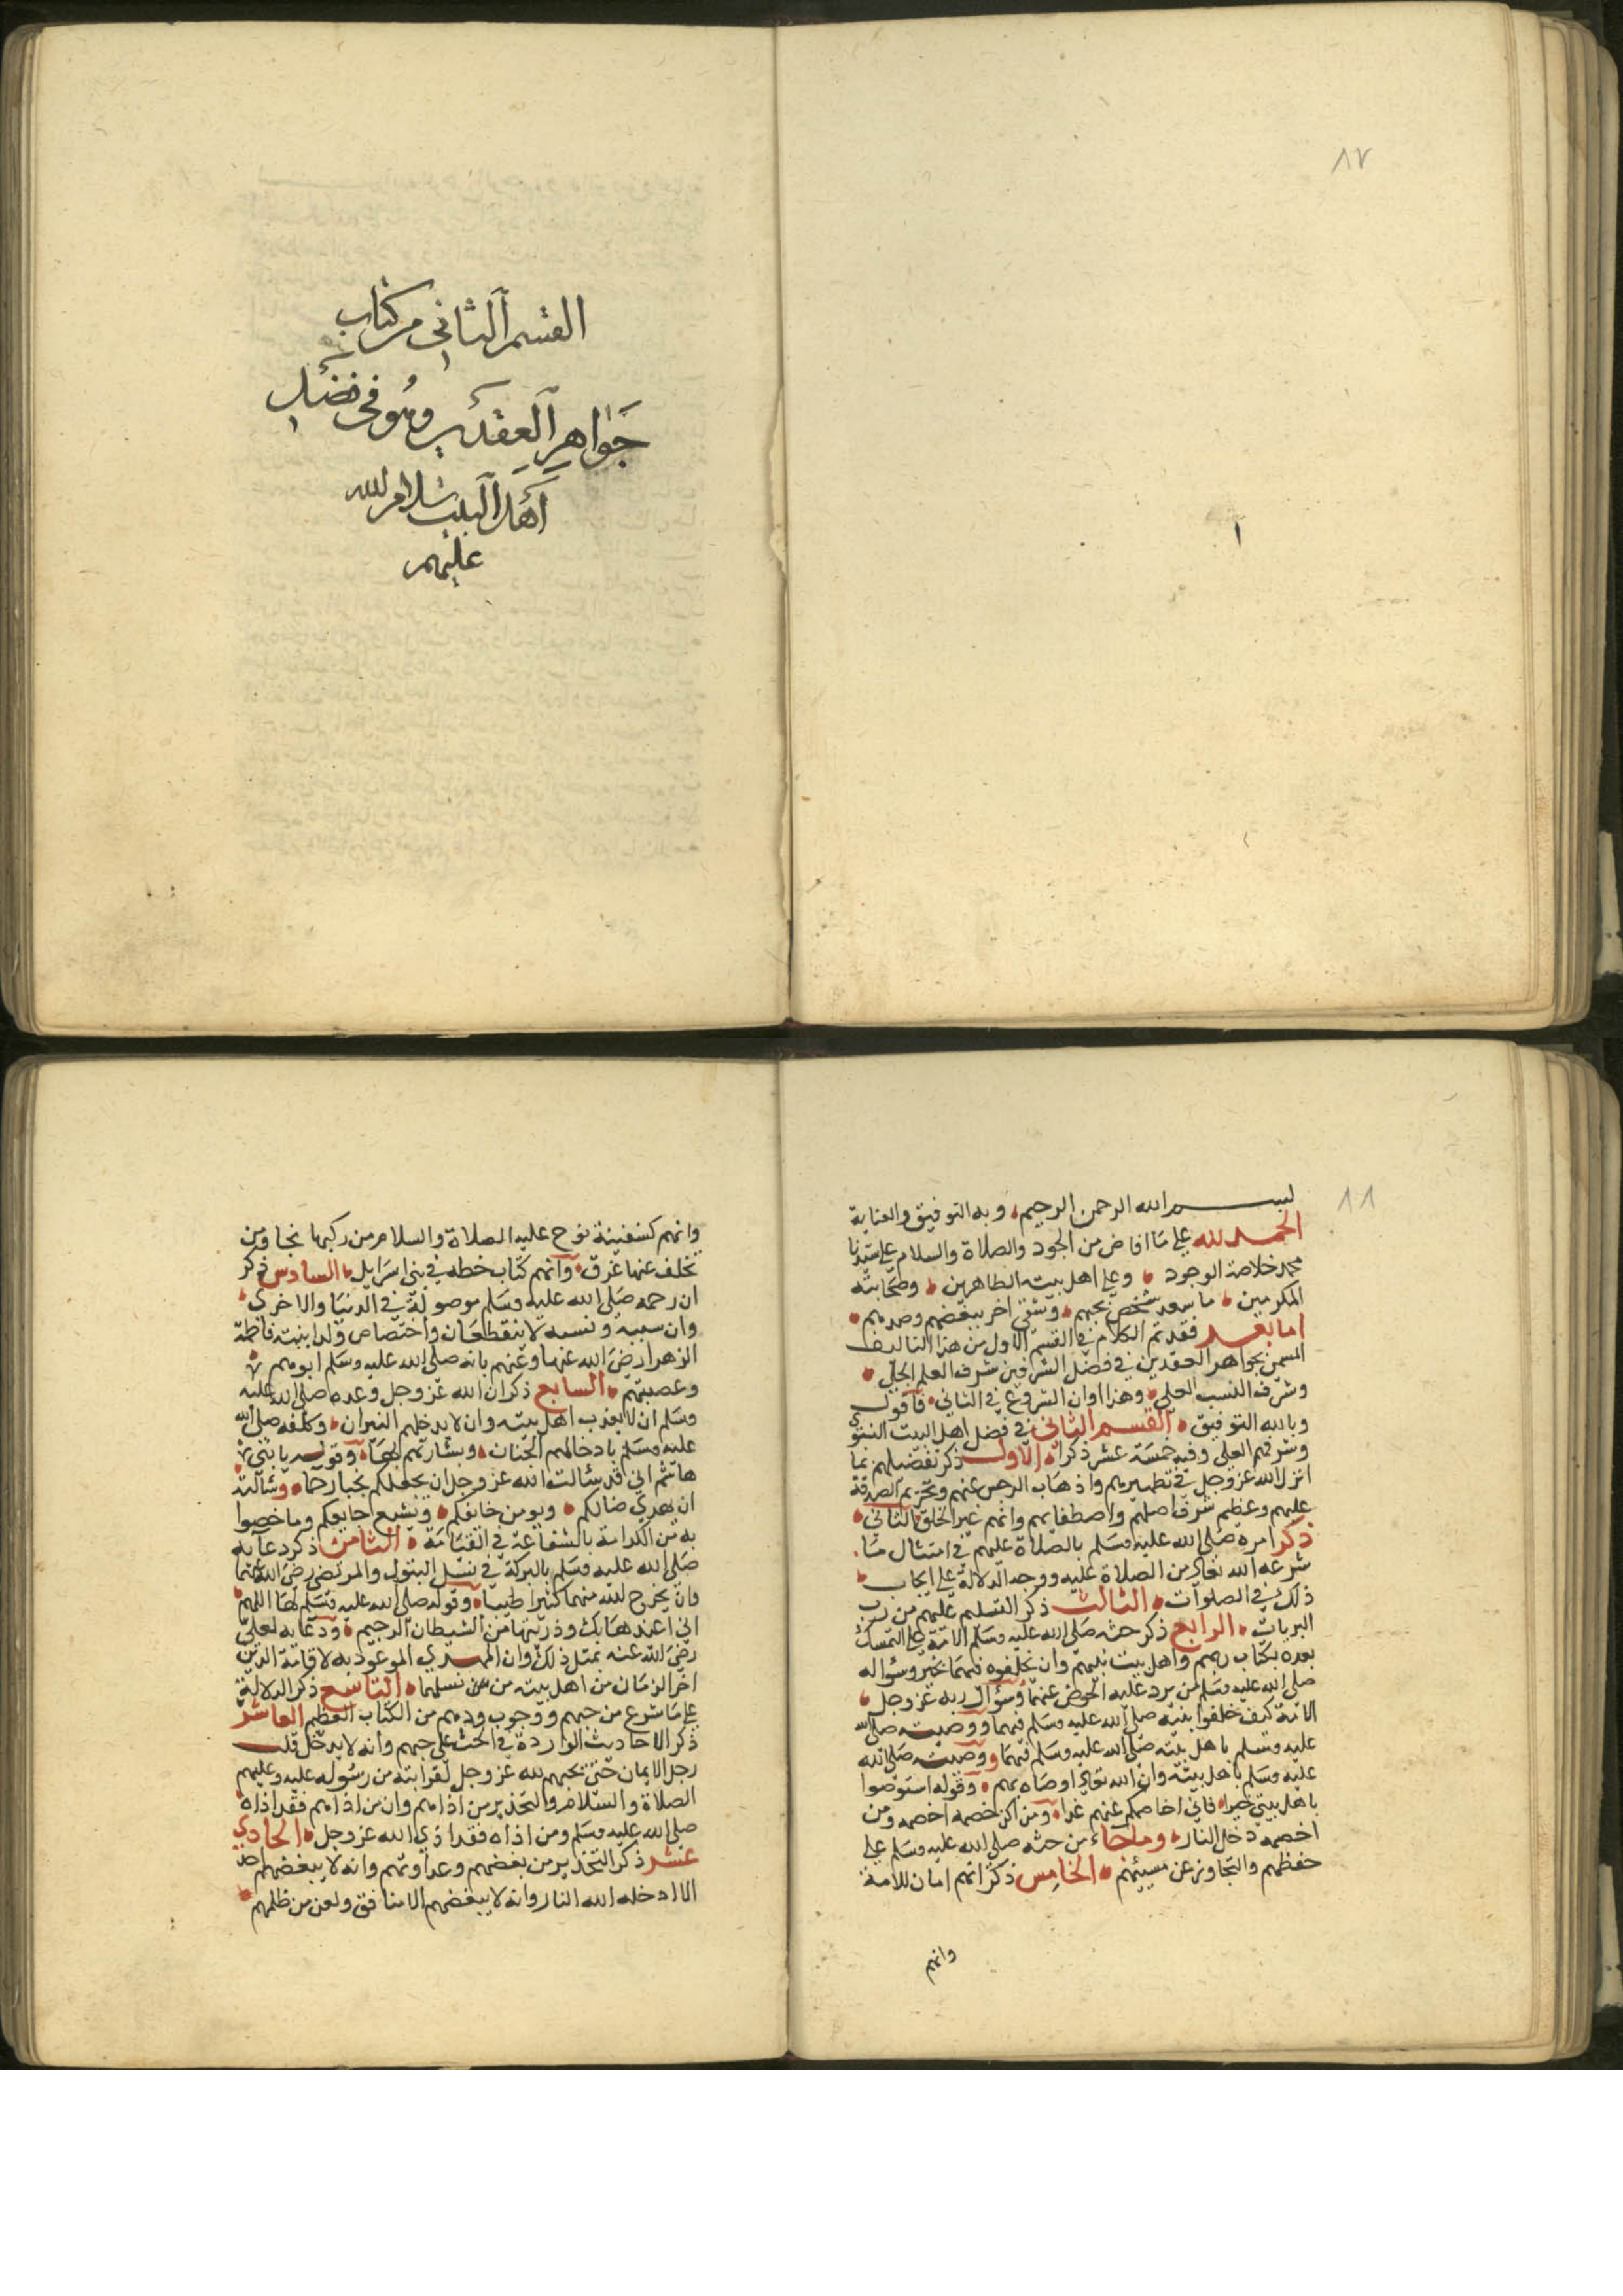 ٨٧
القسم الثاني من كتاب
جواهر العقدين وهو في فضل
أهل البيت سلام الله
عليهم
٨٨
بسم الله الرحمن الرحيم وبه التوفيق والعناية
الحمد لله على ما افاض من الجود والصلاة والسلام على سيدنا
محمد خلاصة الوجود وعلى اهل بيته الطاهرين وصحابته
المكرمين ما سعد شخص بحبهم وشقي اخر ببغضهم وصدهم
اما بعد فقد تم الكلام في القسم الاول من هذا التاليف
المسمى بجواهر العقدين في فضل الشرفين شرف العلم الجلي
وشرف النسب العلي وهذا اوان الشروع في الثاني فاقول
وبالله التوفيق القسم الثاني في فضل اهل البيت النبوي
وشرفهم العلي وفيه خمسة عشر ذكرا الاول ذكر تفضيلهم بما
انزل الله عز وجل في تطهيرهم واذهاب الرجس عنهم وتحريم الصدقة
عليهم وعظيم شرف اصلهم واصطفائهم وانهم خير الخلق الثاني
ذكر امره صلى الله عليه وسلم بالصلاة عليهم في امتثال ما
شرعه الله تعالى من الصلاة عليه ووجه الدلالة على ايجاب
ذلك في الصلوات الثالث ذكر التسليم عليهم من رب
البريات الرابع ذكر حثه صلى الله عليه وسلم الامة على التمسك
بعده بكتاب ربهم واهل بيت نبيهم وان يخلفوه فيهما بخير وسؤاله
صلى الله عليه وسلم لمن يرد عليه الحوض عنهما وسؤال ربه عز وجل
الامة كيف خلفوا نبيه صلى الله عليه وسلم فيهما ووصيته صلى الله
عليه وسلم باهل بيته صلى الله عليه وسلم فيهما ووصيته صلى الله
عليه وسلم باهل بيته وان الله تعالى اوصاه بهم وقوله استوصوا
باهل بيتي خيرا فاني اخاصمكم عنهم غدا ومن اكن خصمه اخصمه ومن
اخصمه دخل النار وما جاء من حثه صلى الله عليه وسلم على
حفظهم والتجاوز عن مسيئهم الخامس ذكر انهم امان للامة
وانهم
وانهم كسفينة نوح عليه الصلاة والسلام من ركبها نجا ومن
تخلف عنها غرق وانهم كتاب حطه في بني اسرايل السادس ذكر
ان رحمه صلى الله عليه وسلم موصولة في الدنيا والاخرى
وان سببه ونسبه لا ينقطعان واختصاص ولد ابنته فاطمة
الزهرا رضي الله عنها وعنهم بانه صلى الله عليه وسلم ابوهم
وعصبتهم السابع ذكر ان الله عز وجل وعده صلى الله عليه
وسلم ان لا يعذب اهل بيته وان لا يدخلهم النيران وكلفه صلى الله
عليه وسلم بادخالهم الجنان وبشارتهم بها وقوله يا بني
هاشم اني قد سئالت الله عز وجل ان يجعلكم نجبا رحما وسالته
ان يهدي ضالكم ويومن خائفكم ويشبع جايعكم وما خصوا
به من الكرامة بالشفاعة في القيامة الثامن ذكر دعائه
صلى الله عليه وسلم بالبركة في نسل البتول والمرتضى رضي الله عنهما
وان يخرج الله منهما كثيرا طيبا وقوله صلى الله عليه وسلم لها اللهم
اني اعيذها بك وذريتها من الشيطان الرجيم ودعائه لعلي
رضي الله عنه بمثل ذلك وان المهدي الموعود به لاقامة الدين
اخر الزمان من اهل بيته من نسلهما التاسع ذكر الدلالة
على ما شرع من حبهم ووجوب ودهم من الكتاب العظيم العاشر
ذكر الاحاديث الواردة في الحث على حبهم وانه لا يدخل قلب
رجل الايمان حتى يحبهم لله عز وجل لقرابته من رسوله عليه وعليهم
الصلاة والسلام والتحذير من اذاهم وان من اذاهم فقد اذاه
صلى الله عليه وسلم ومن اذاه فقد اذي الله عز وجل الحادي
عشر ذكر التحذير من بغضهم وعداوتهم وانه لا يبغضهم احد
الا ادخله الله النار وانه لا يبغضهم الا منافق ولعن من ظلمهم